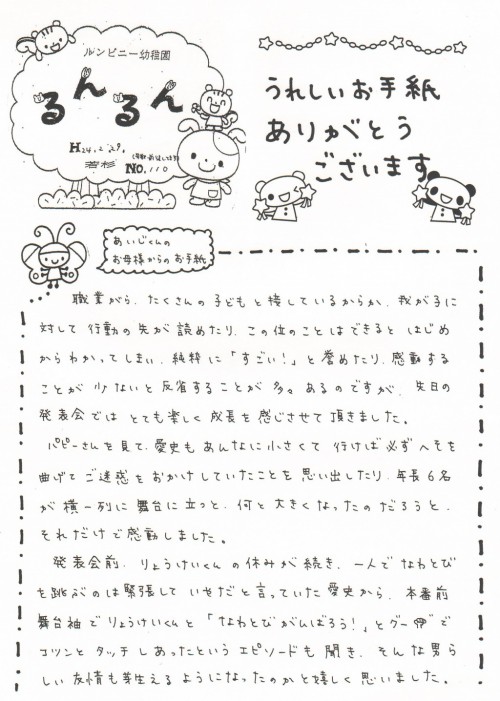 ルンビニー幼稚園
るんるん
H24.2.29.
若杉 No.110
うれしいお手紙
ありがとう
ございます
あいじくんの
お母様からのお手紙
職業がら、たくさんの子どもと接しているからか、我が子に
対して行動の先が読めたり、この位のことはできるとはじめ
からわかってしまい、純粋に「すごい!」と誉めたり、感動する
ことが少ないと反省することが多々あるのですが、先日の
発表会ではとても楽しく成長を感じさせて頂きました。
パピーさんを見て、愛史もあんなに小さくて行けば必ずへそを
曲げてご迷惑をおかけしていたことを思い出したり、年長6名
が横一列に舞台に立つと、何と大きくなったのだろうと、
それだけで感動しました。
発表会前、りょうけいくんの休みが続き、一人でなわとび
を跳ぶのは緊張していやだと言っていた愛史から、本番前
舞台袖でりょうけいくんと「なわとびがんばろう!」とグーで
コツンとタッチしあったというエピソードも聞き、そんな男ら
しい友情も芽生えるようになったのかと嬉しく思いました。